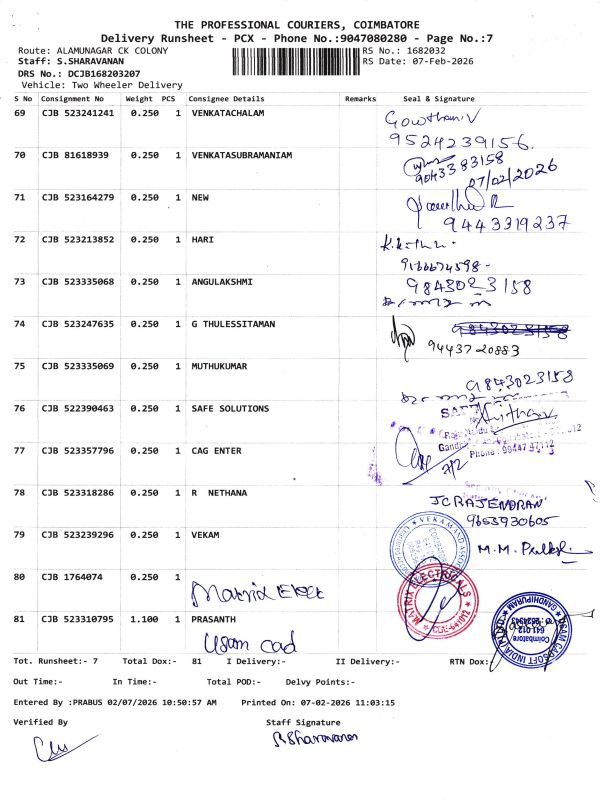 THE PROFESSIONAL COURIERS, COIMBATORE
Delivery Runsheet - PCX - Phone No.:9047080280 - Page No.:7
Route: ALAMUNAGAR CK COLONY RS No.: 1682032
Staff: S.SHARAVANAN RS Date: 07-Feb-2026
DRS No.: DCJB168203207
Vehicle: Two Wheeler Delivery
S No Consignment No Weight PCS Consignee Details Remarks Seal & Signature
69 CJB 523241241 0.250 1 VENKATACHALAM Gowtham.V
9524239156.
70 CJB 81618939 0.250 1 VENKATASUBRAMANIAM 9043383158
07/02/2026
71 CJB 523164279 0.250 1 NEW
9443319237
72 CJB 523213852 0.250 1 HARI
73 CJB 523335068 0.250 1 ANGULAKSHMI 9843023158
74 CJB 523247635 0.250 1 G THULESSITAMAN 9843023158
94437 20883
75 CJB 523335069 0.250 1 MUTHUKUMAR 9843023158
76 CJB 522390463 0.250 1 SAFE SOLUTIONS
77 CJB 523357796 0.250 1 CAG ENTER
7/2
78 CJB 523318286 0.250 1 R NETHANA JCRAJENDRAN
9653930605
79 CJB 523239296 0.250 1 VEKAM
80 CJB 1764074 0.250 1
Matrix Elect
MATRIX ELECTRICALS
81 CJB 523310795 1.100 1 PRASANTH
Usam cad
USAM CADSOFT INDIA (P) LTD
GANDHIPURAM
Coimbatore
641 012
Tot. Runsheet:- 7 Total Dox:- 81 I Delivery:- II Delivery:- RTN Dox:
Out Time:- In Time:- Total POD:- Delvy Points:-
Entered By :PRABUS 02/07/2026 10:50:57 AM Printed On: 07-02-2026 11:03:15
Verified By Staff Signature
S Sharavanan